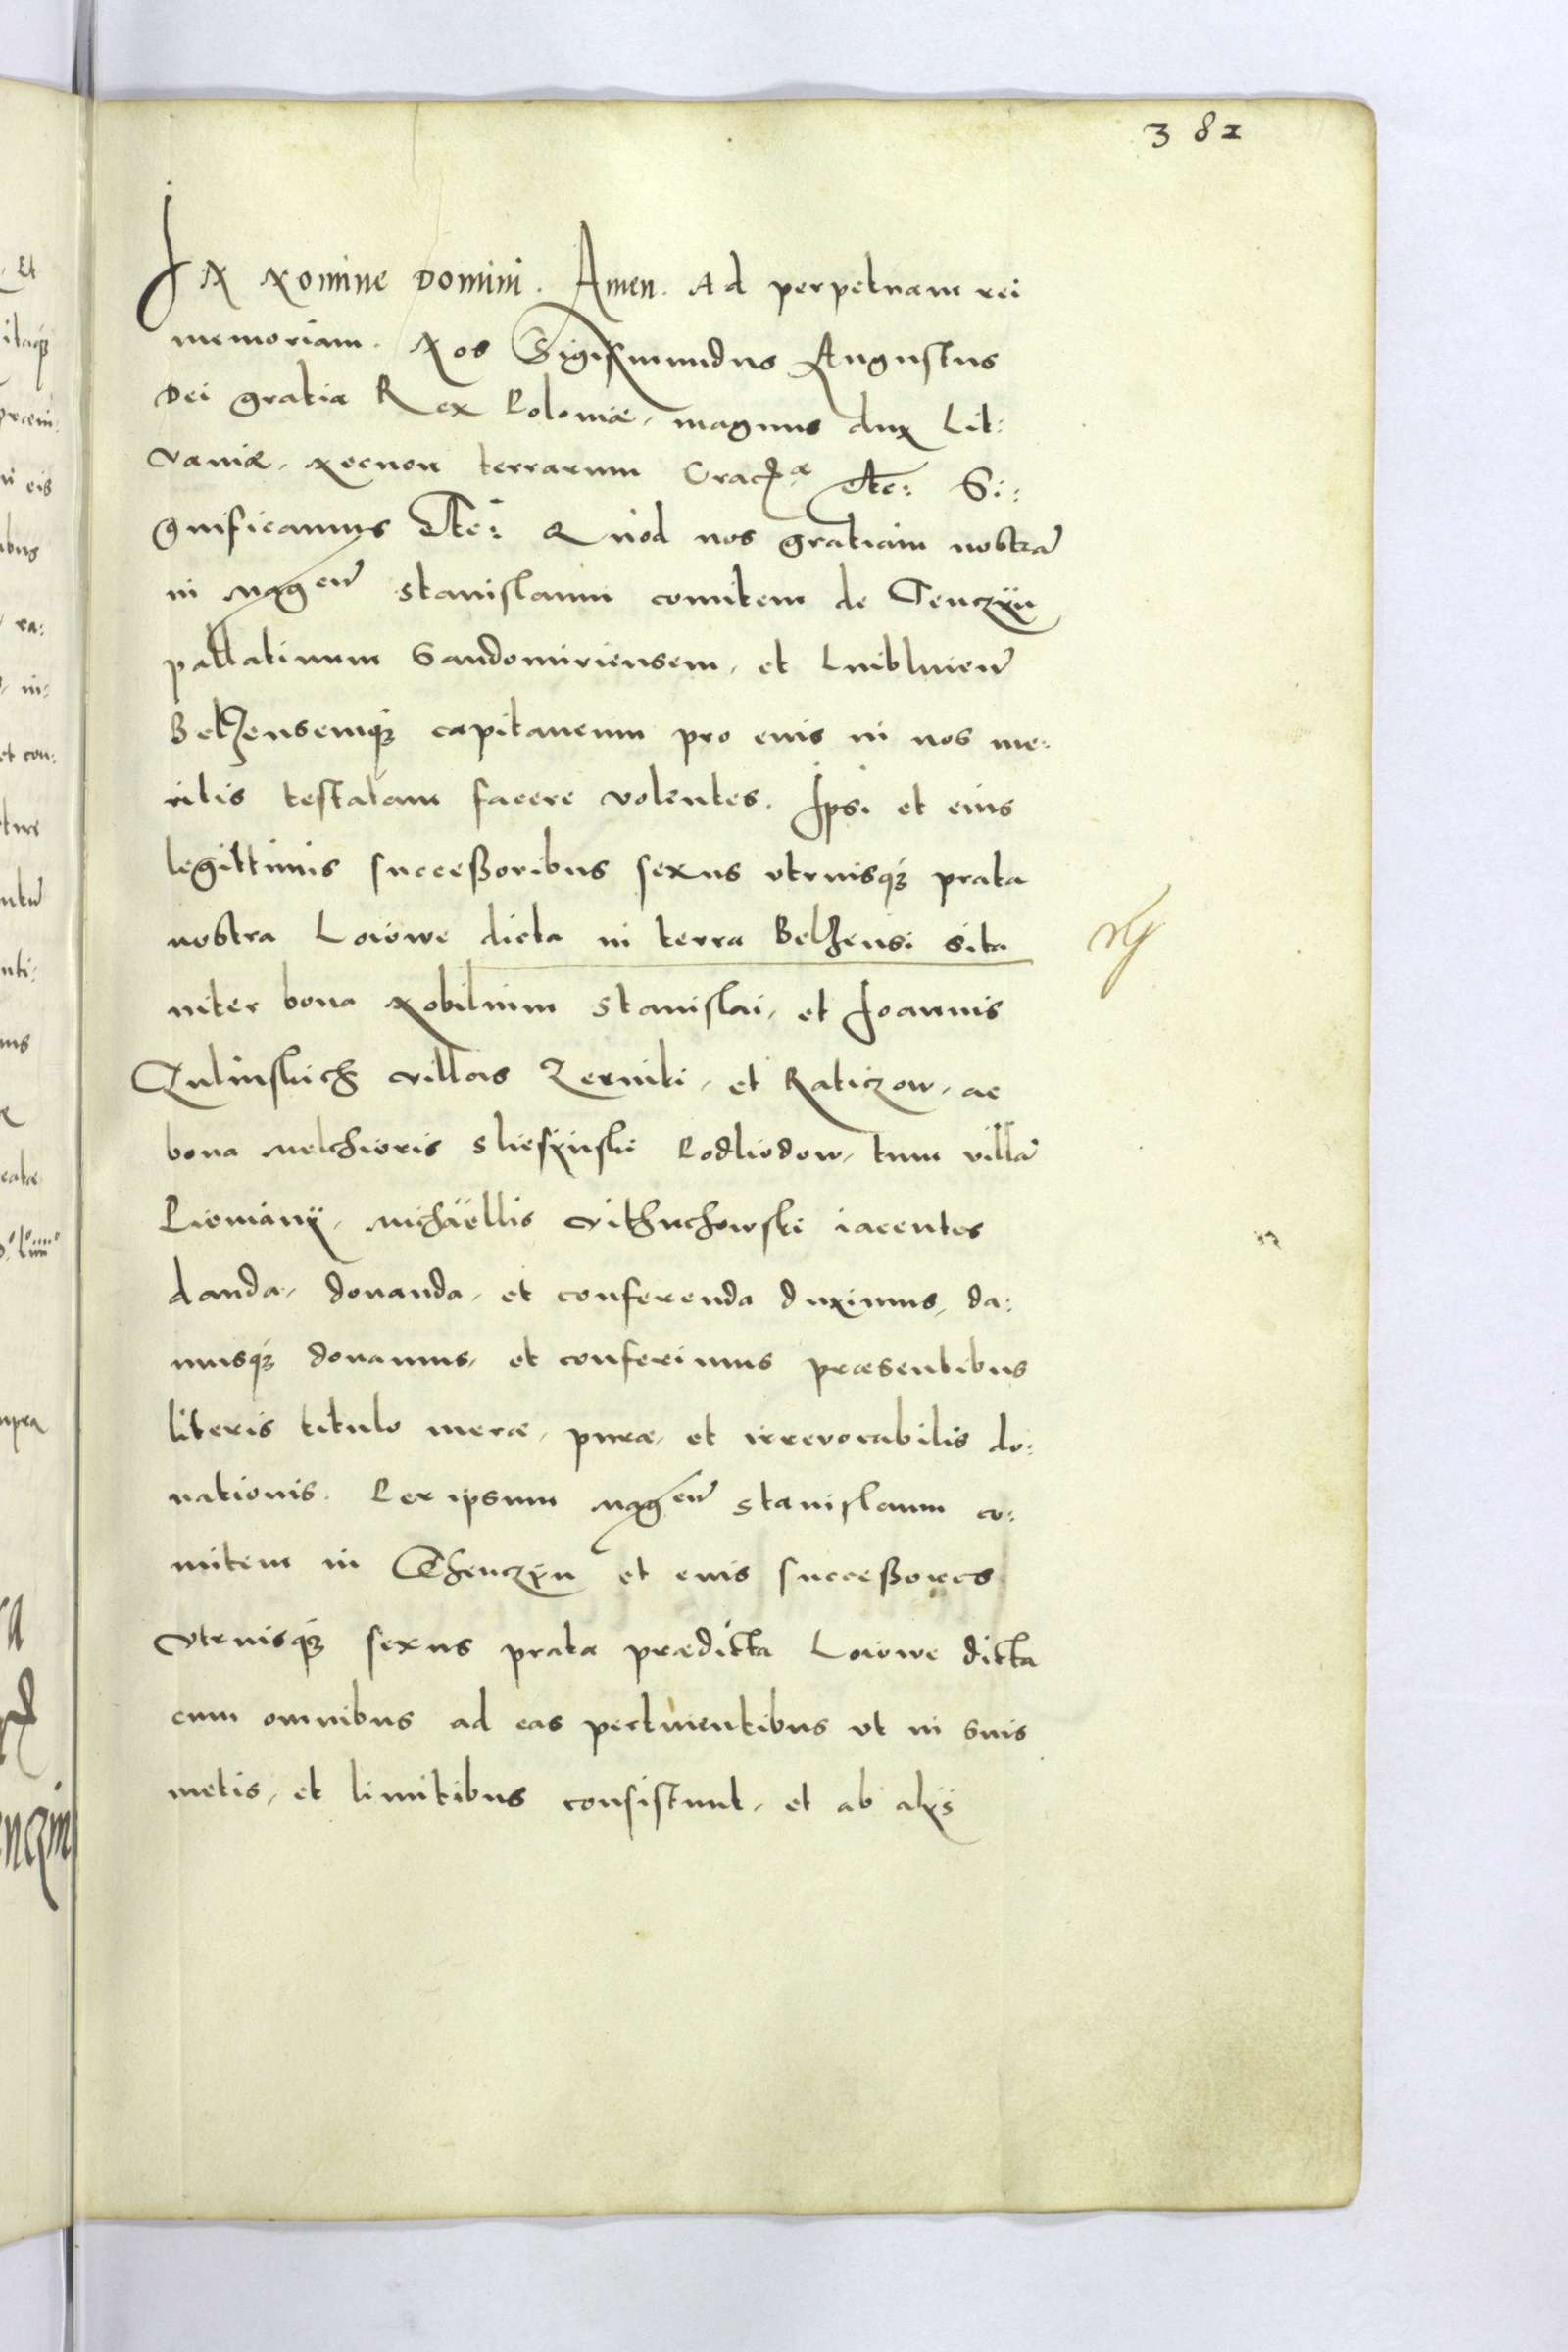 381
In Nomine Domini. Amen. Ad perpetuam rei
memoriam. Nos Sigismundus Augustus
Dei gratia Rex Poloniæ, magnus dux Lit:
vaniæ, Necnon terrarum Crac:æ etc: Si:
gnificamus etc: Quod nos gratiam nostrã
in Magen̄ Stanislaum comitem de Tenczÿn
pallatinum Sandomiriensem, et Lublinen̄
Belzensemq́ue capitaneum pro eius in nos me:
ritis testatam facere volentes. Ipsi et eius
legittimis successoribus sexus vtriusq́ue prata
nostra Loiowe dicta in terra Belzensi sita
inter bona Nobilium Stanislai, et Joannis
Zulinskich villas Zerniki, et Raticzow, ac
bona Melchioris Sliesÿnski Podliodow, tum villã
Piemiany, Michäellis Vithuchowski iacentes
danda, donanda, et conferenda duximus, da:
musq́ue donamus, et conferimus præsentibus
literis titulo meræ, puræ, et irrevocabilis do:
nationis. Per ipsum Magen̄ Stanislaum co:
mitem in Thenczÿn et eius successores
vtriusq́ue sexus prata prædicta Loiowe dicta
cum omnibus ad eas pertinentibus vt in suis
metis, et limitibus consistunt, et ab alÿs